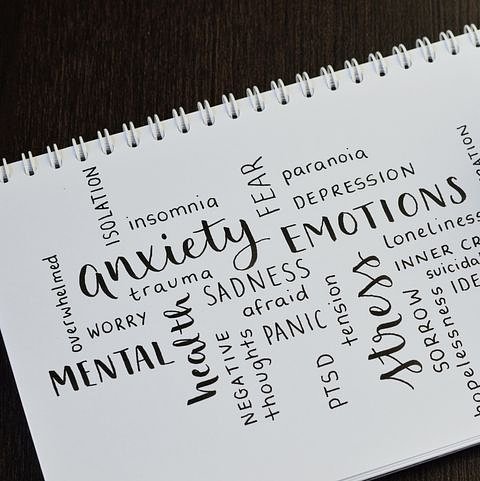 ISOLATION
insomnia
FEAR
paranoia
DEPRESSION
overwhelmed
anxiety
EMOTIONS
trauma
SADNESS
loneliness
WORRY
afraid
tension
stress
INNER CR
suicidal
IDE
MENTAL
health
NEGATIVE
thoughts
PANIC
PTSD
SORROW
hopelessness